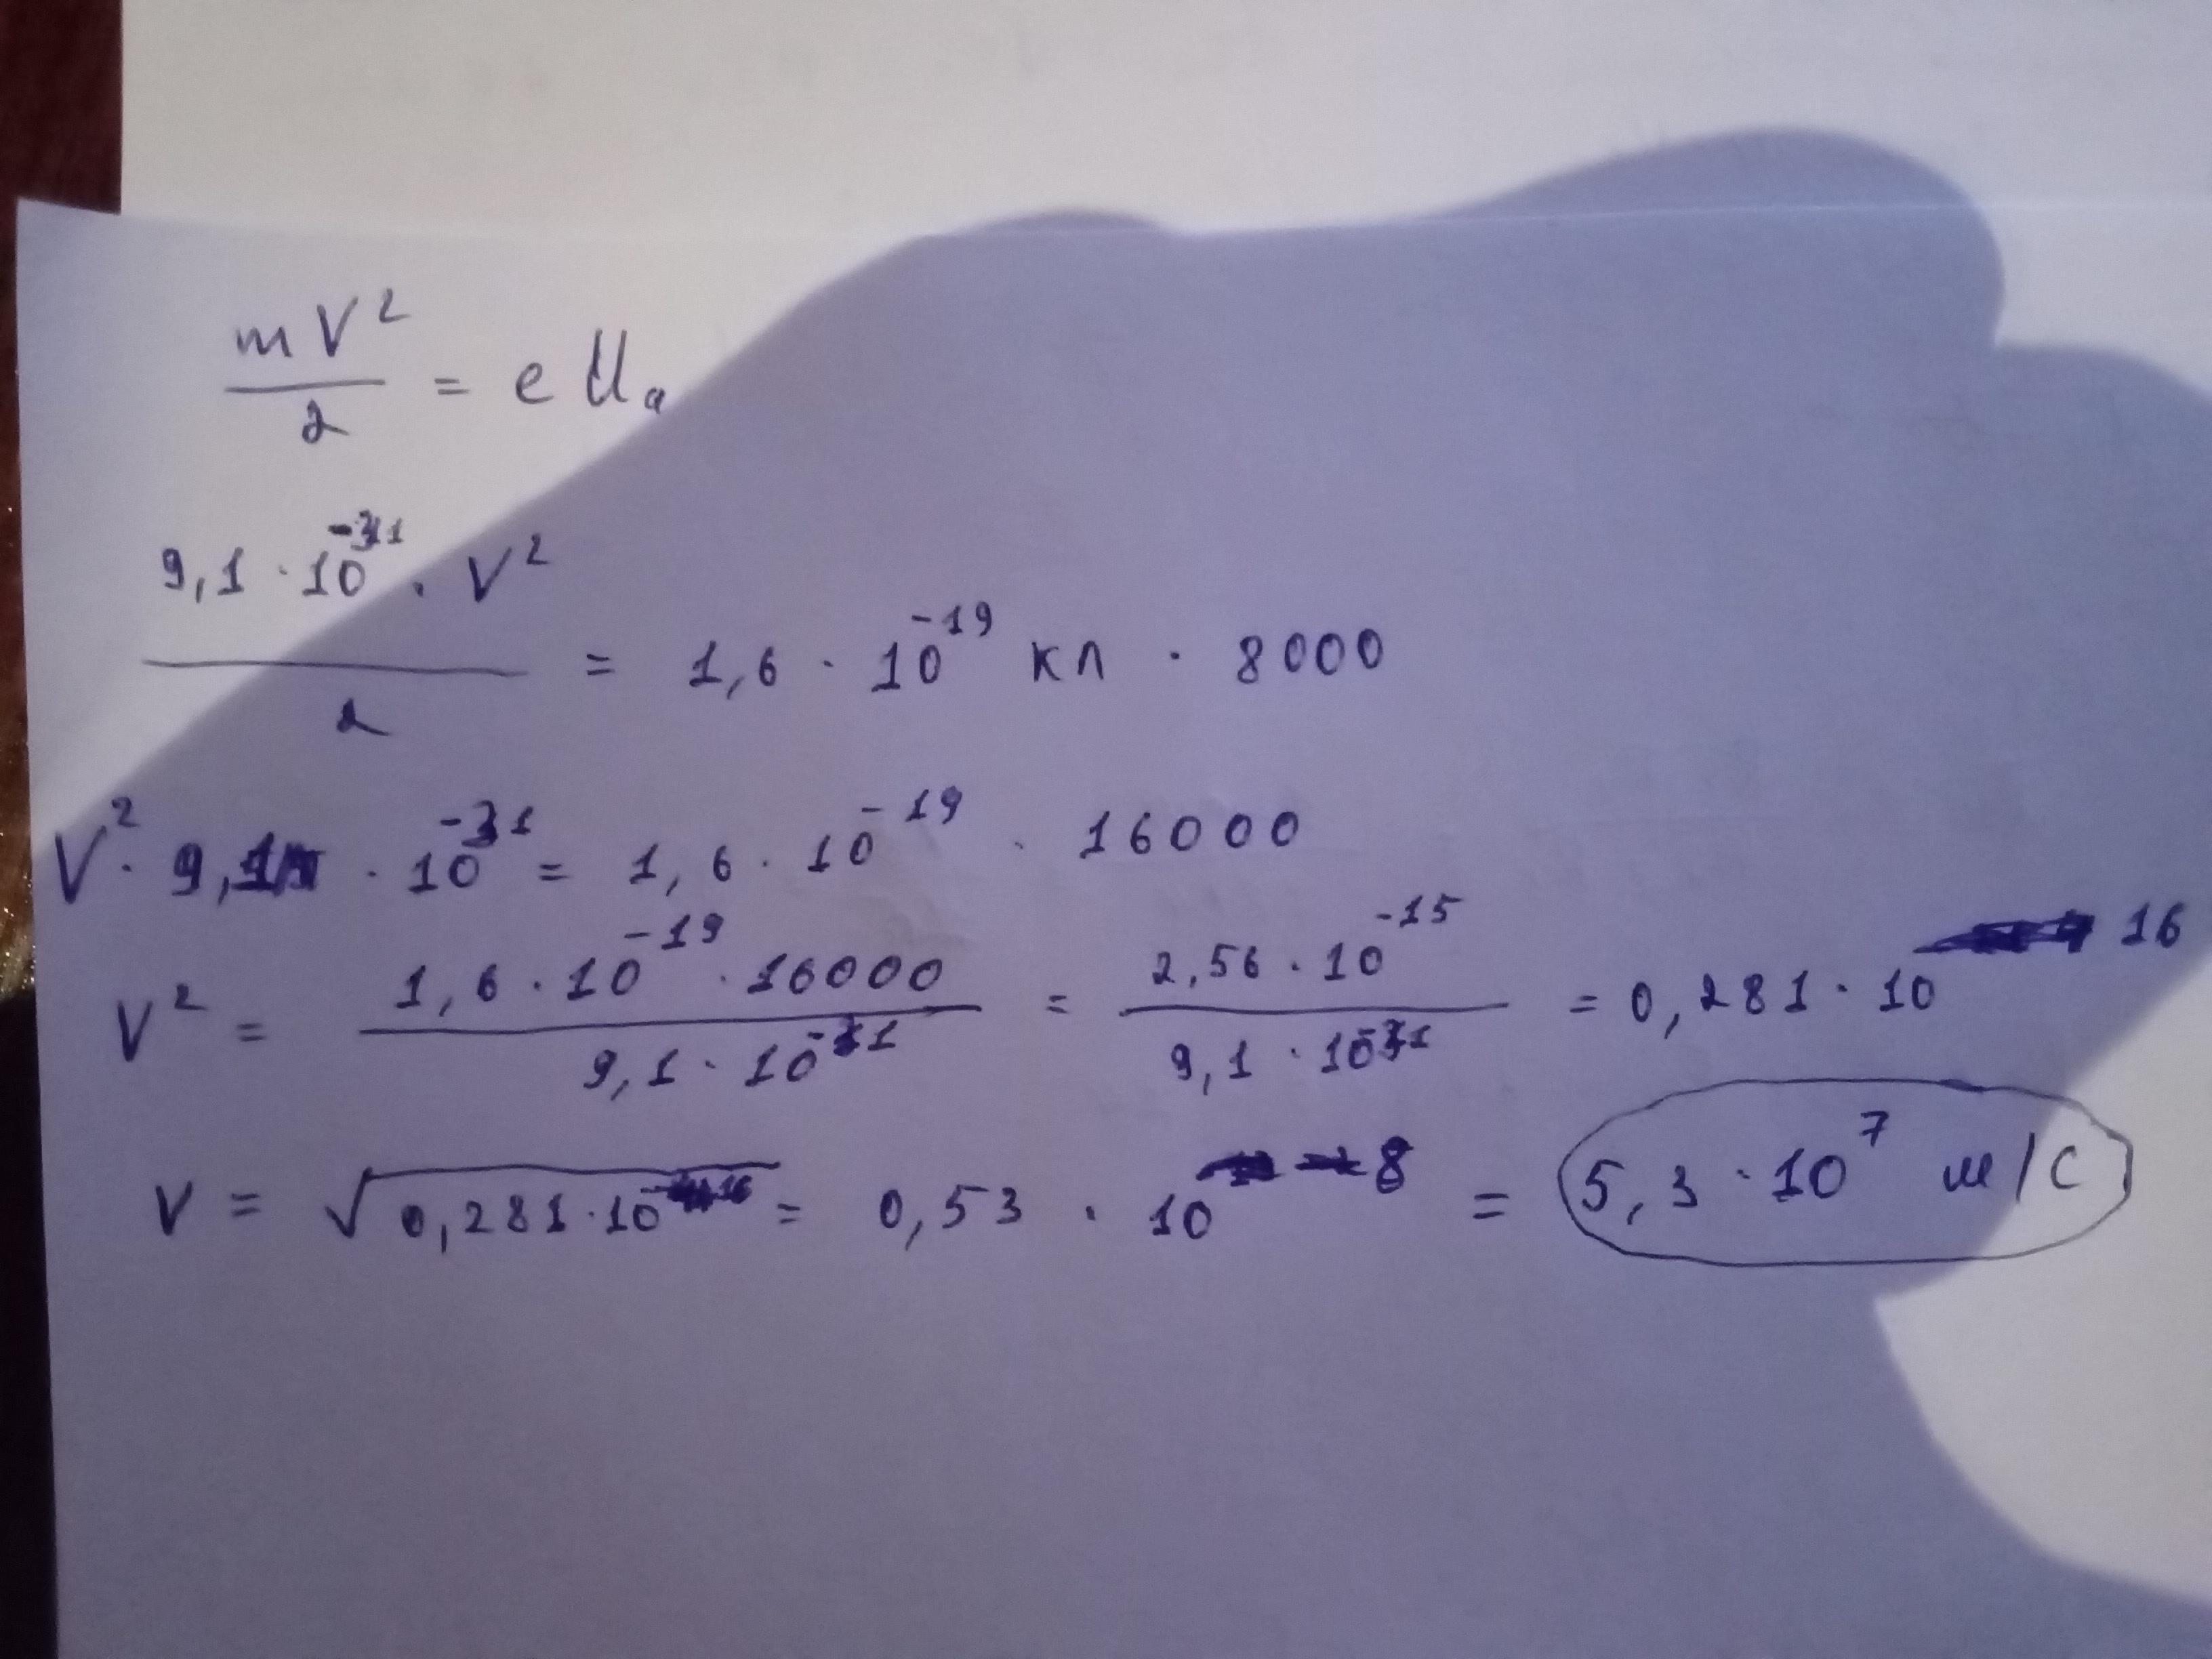 mV²/2 = eUₐ
9,1 · 10⁻³¹ · V²/2 = 1,6 · 10⁻¹⁹ кл · 8000
V² · 9,1 · 10⁻³¹ = 1,6 · 10⁻¹⁹ · 16000
V² = 1,6 · 10⁻¹⁹ · 16000/9,1 · 10⁻³¹ = 2,56 · 10⁻¹⁵/9,1 · 10⁻³¹ = 0,281 · 10¹⁶
V = √0,281 · 10¹⁶ = 0,53 · 10⁸ = 5,3 · 10⁷ м/с